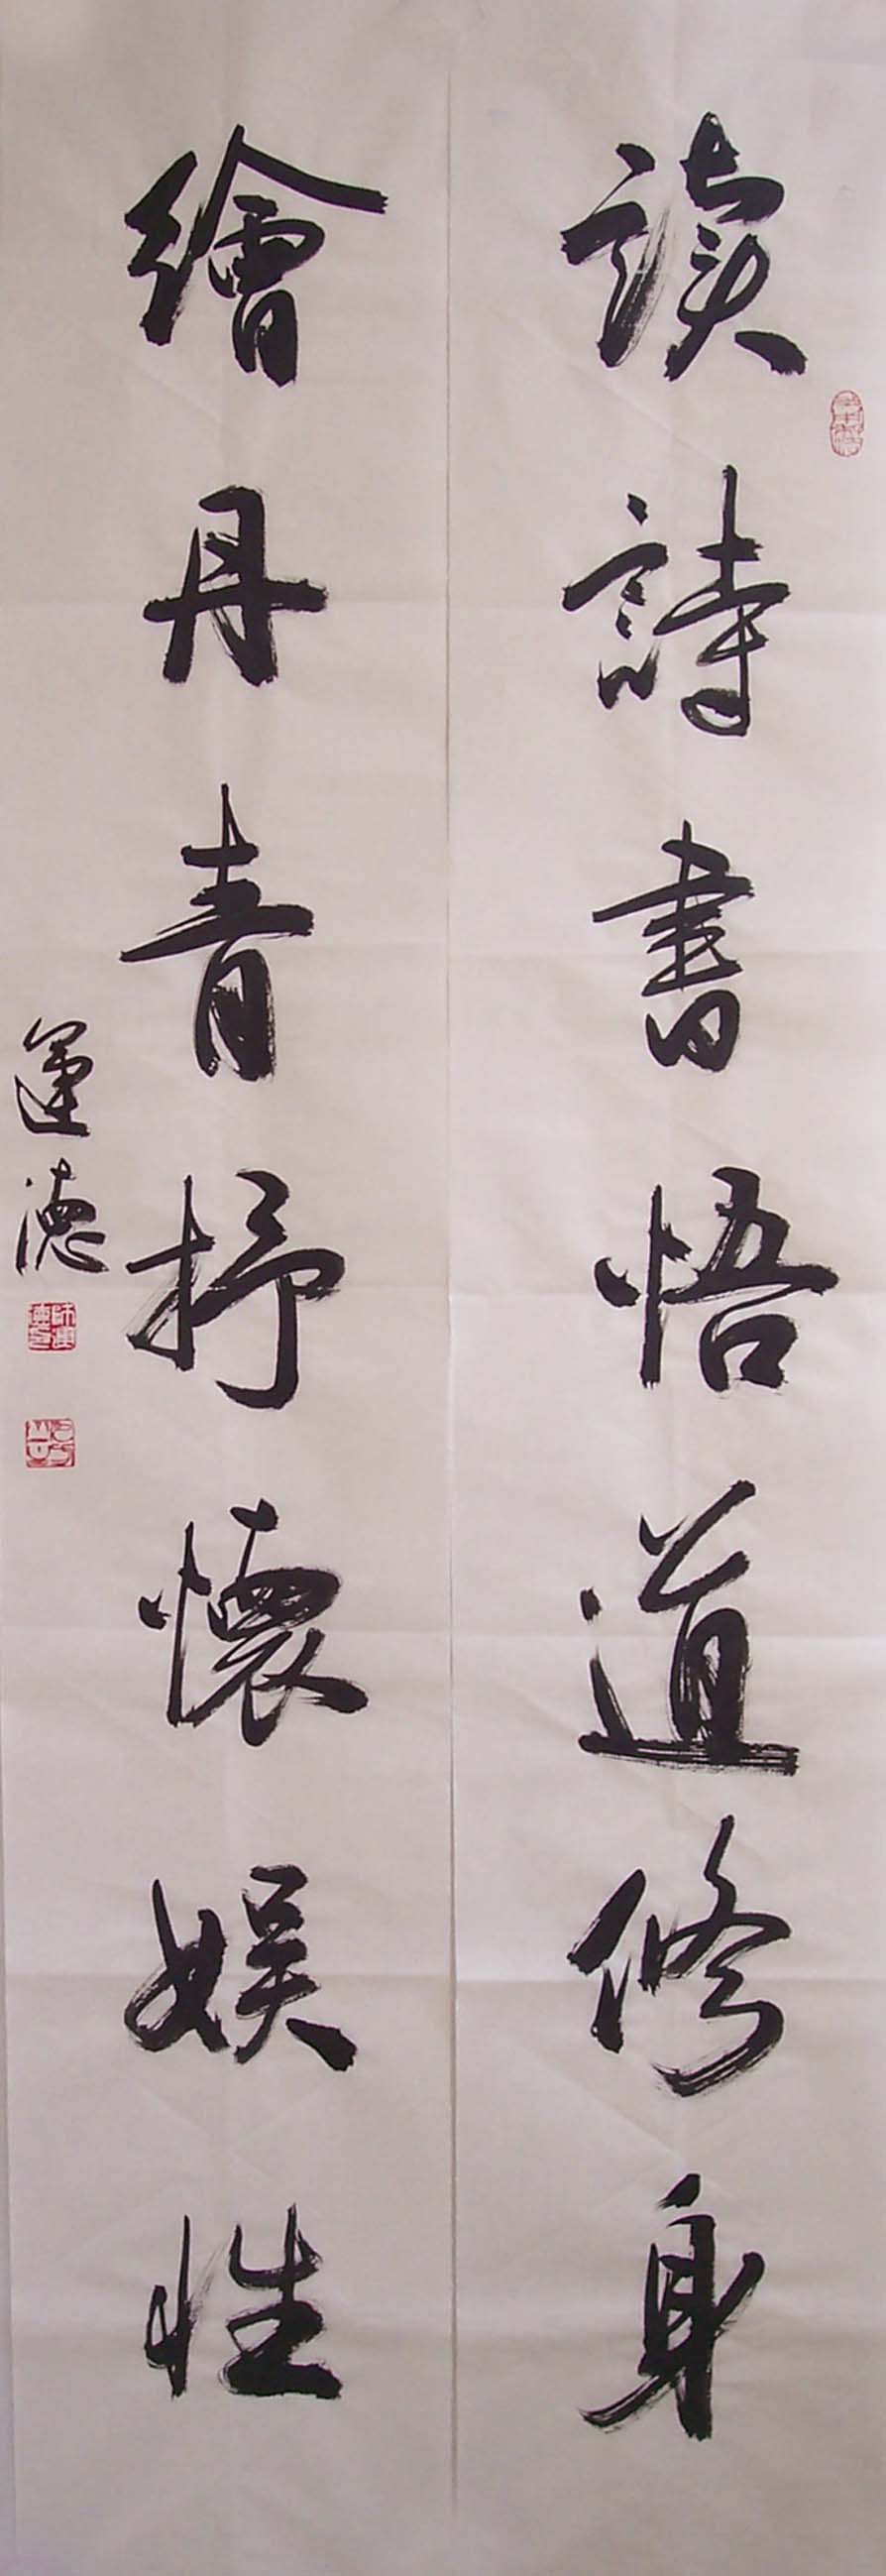 讀詩書悟道修身
繪丹青抒懷娛性
運德